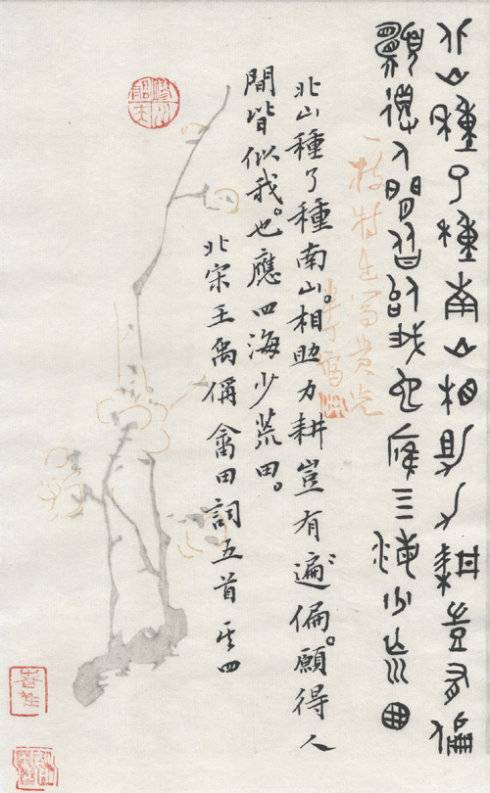 北山種了種南山相助力耕豈有偏
願得人間皆似我也應四海少荒田
北山種了種南山。相助力耕豈有遍偏。願得人
間皆似我。也應四海少荒田。
北宋王禹偁畬田詞五首其四